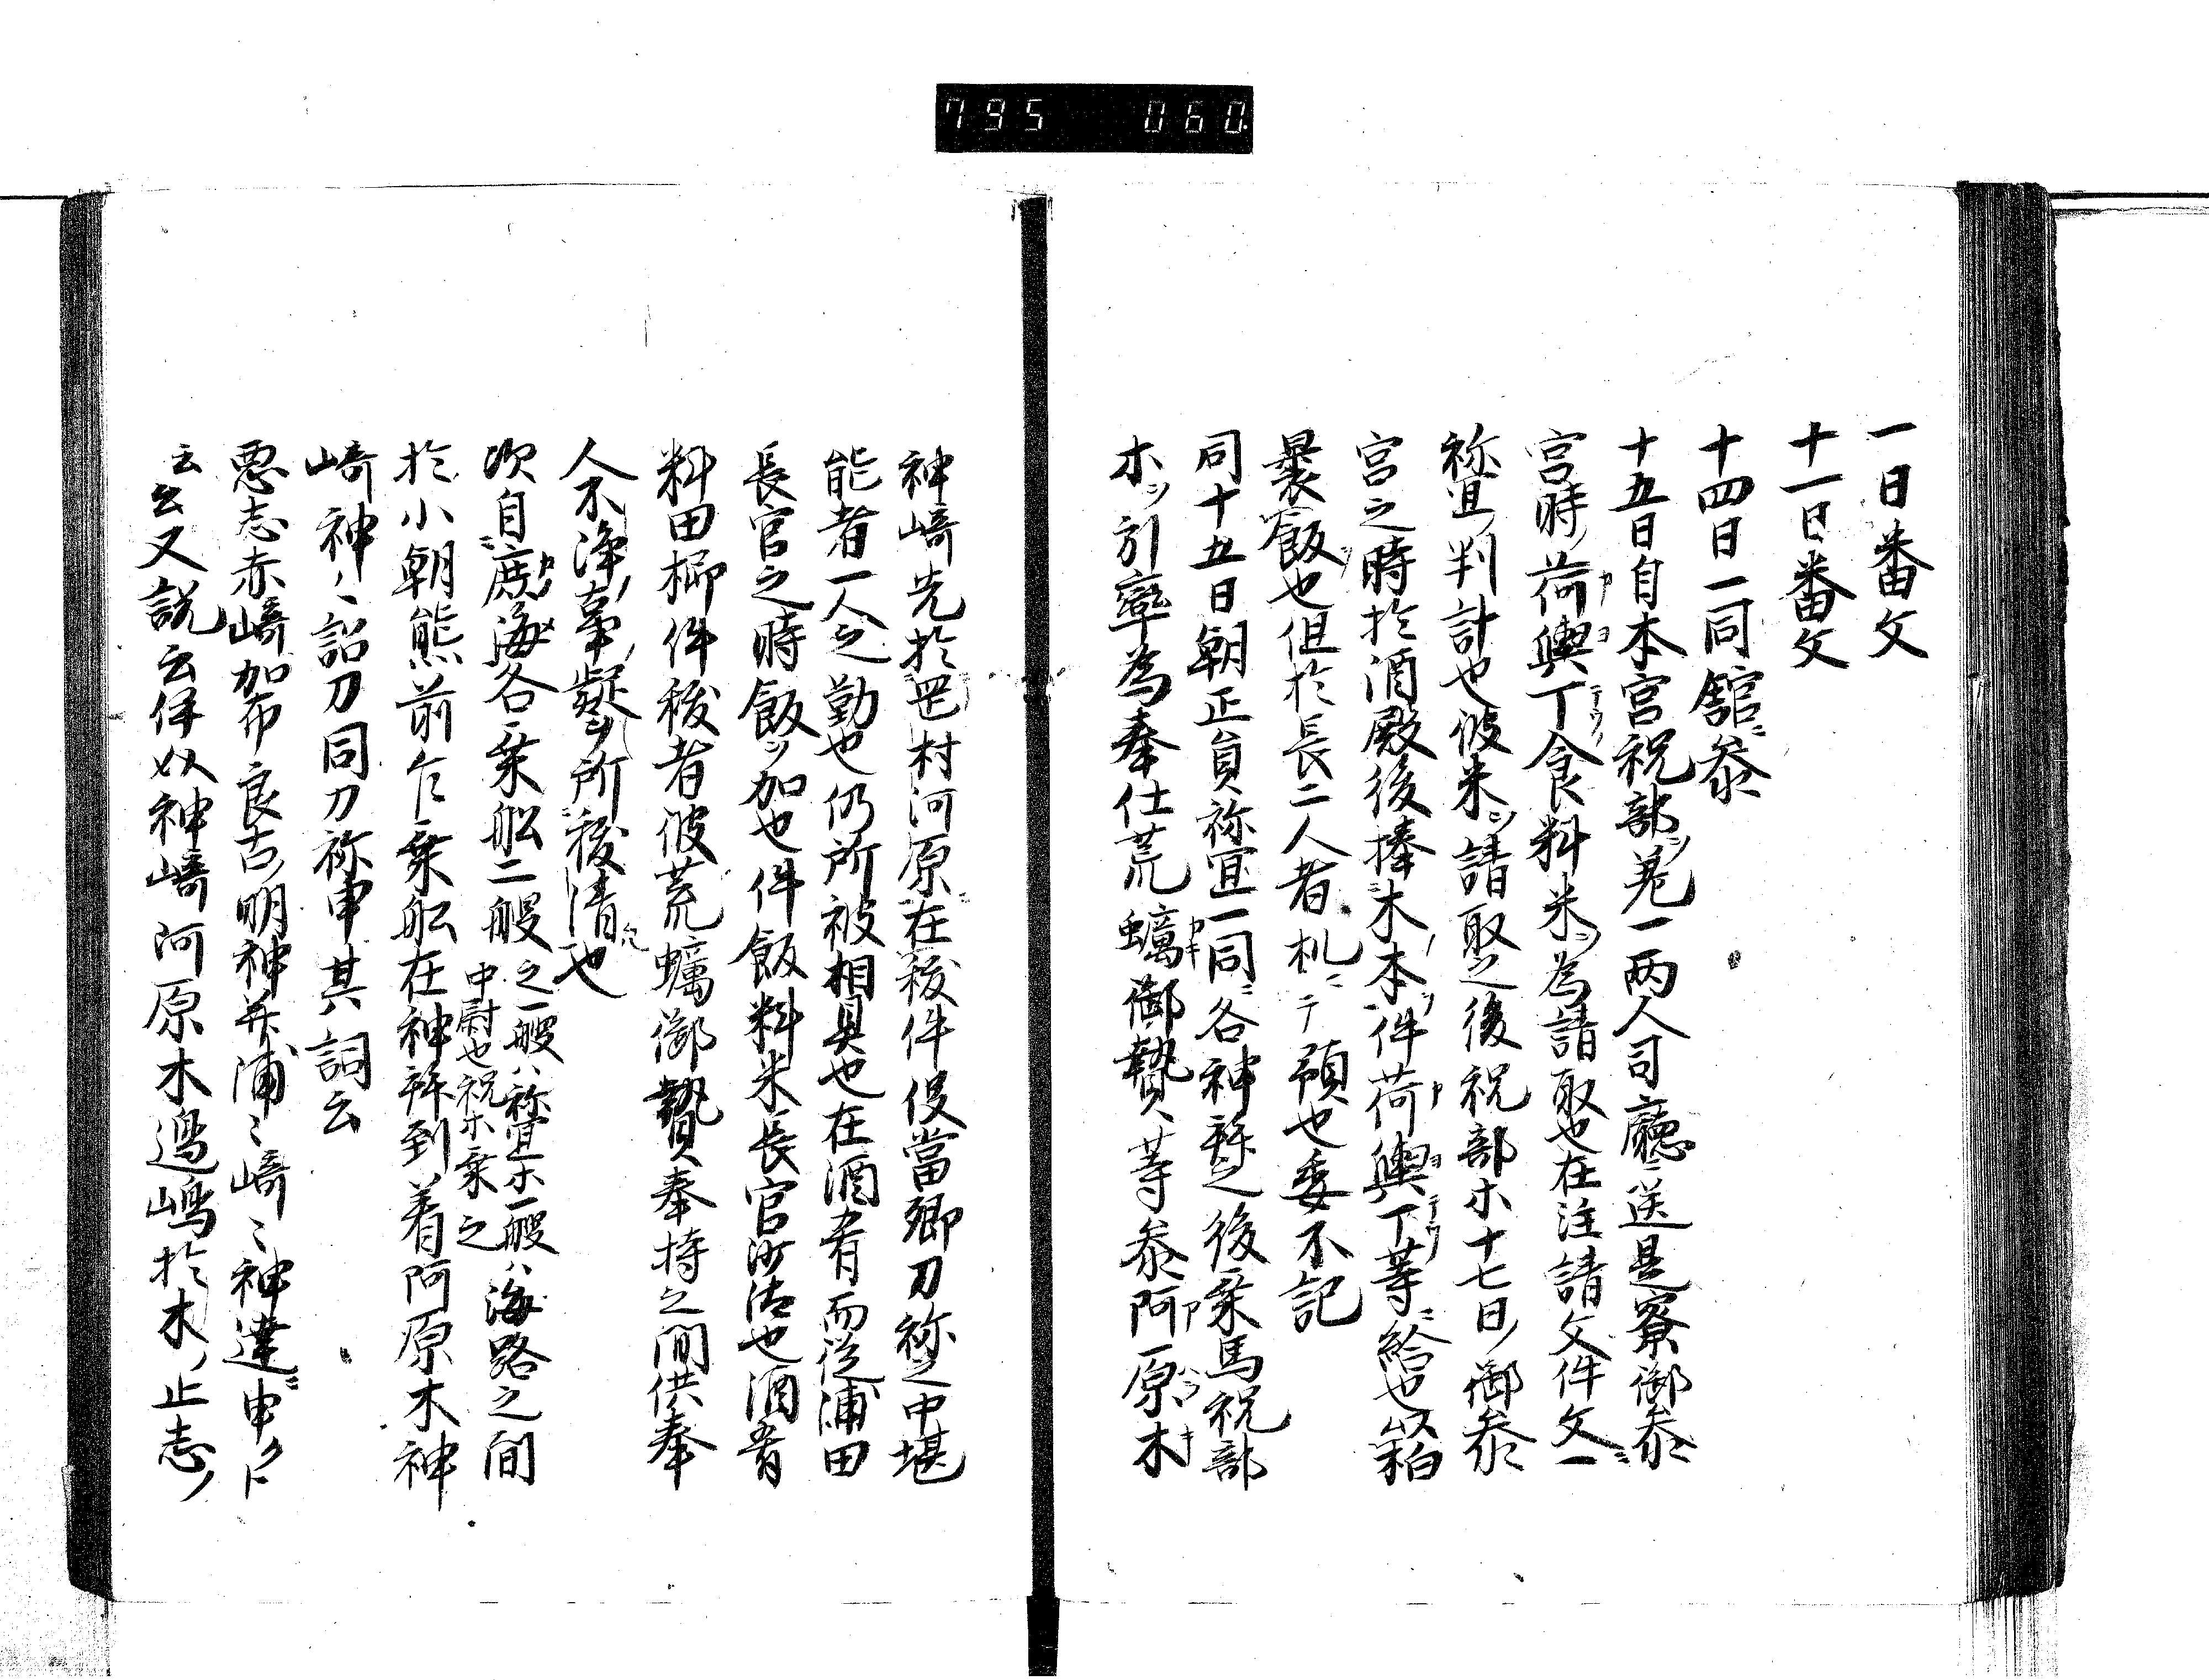 795 060
一日番文
十一日番文
十四日一同舘ニ参
十五日自本宮祝部ヲ差一両人司廳ニ送是寮御参
宮時ノ荷輿丁食料米ヲ為請取也在注請文件文ニ一
祢宜ノ判計也彼米ヲ請取之後祝部ホ十七日ノ御参
宮之時於酒殿後捧木ノ本ノ件荷輿丁等ニ給也
飯也但於長二人者机ニテ預也委不記
同十五日朝正員祢宜一同ニ各神拜之後乗馬祝部
ホヲ引率為奉仕荒蠣御贄、等参阿原木
神﨑先於村河原在祓件役當郷刀祢之中堪
能者一人之勤也仍所被相具也在酒肴而従浦田
長官之時飯ヲ加也件飯料米長官沙汰也酒肴
料田櫛件祓者彼荒蠣御贄奉持之間供奉
人不浄事ノ疑ヲ所祓清也
次自鹿海各乗舩二艘之一艘ハ祢宜ホ一艘ハ海路之間
中尉也祝ホ乗之
於小朝熊前乍乗舩在神拜到着阿原木神
﨑神、詔刀同刀祢申其詞云
悪志赤﨑加布良古ノ明神并浦〻﨑〻神達ニ申クト
云〻又説云伊奴神﨑河原木過嶋於木ノ止志ノ